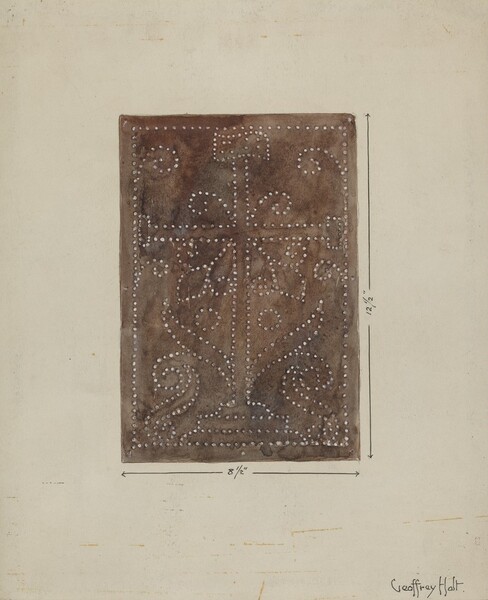 12½"
8½"
Geoffrey Holt.